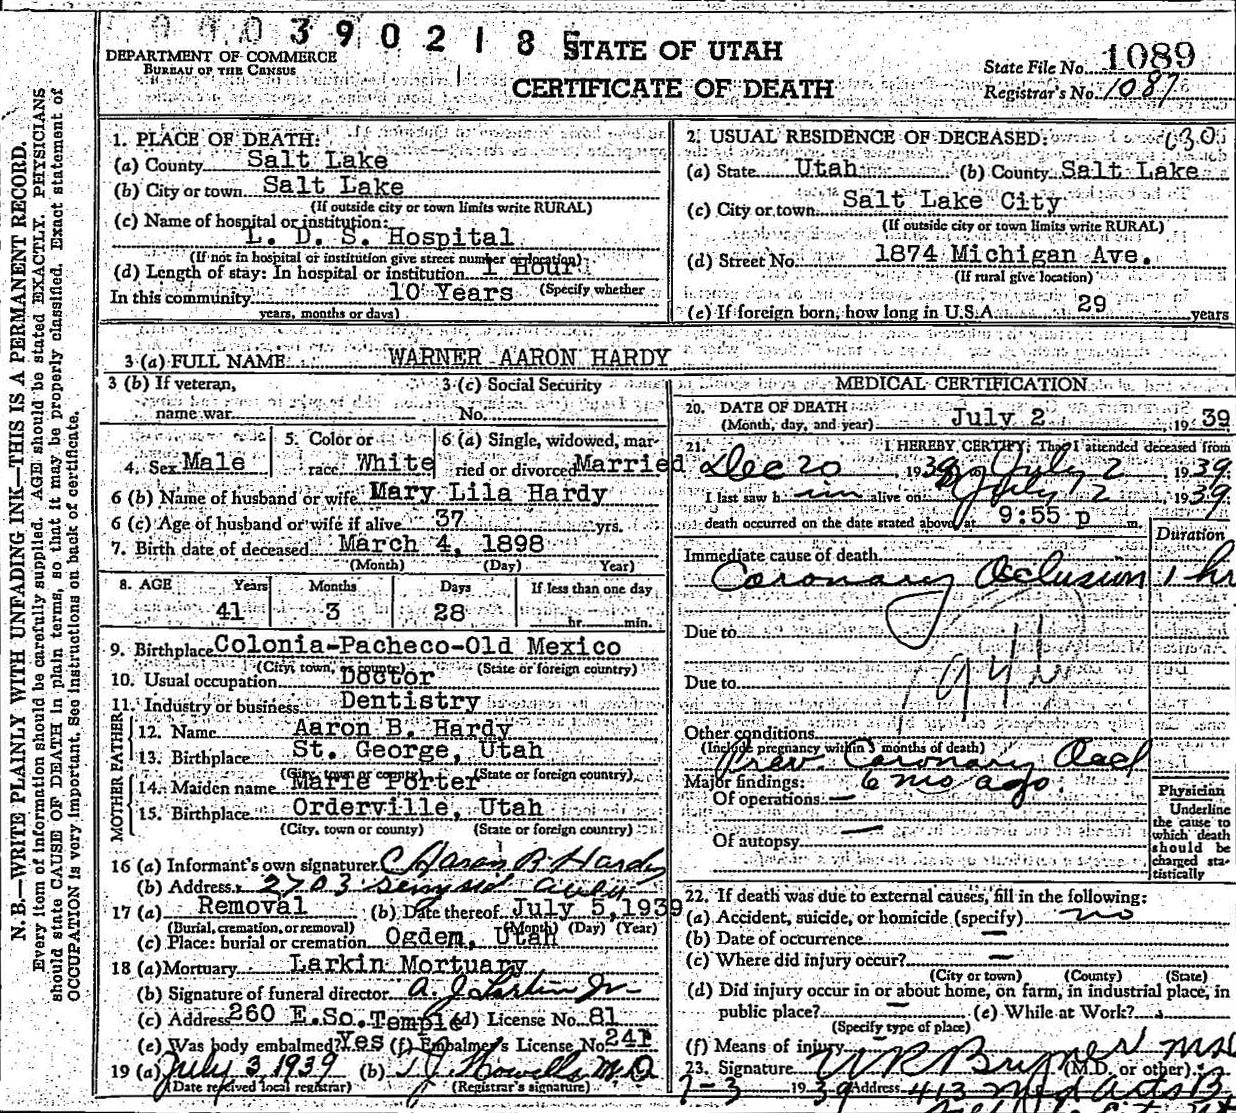 0 0 0 3 9 0 2 1 8 5
DEPARTMENT OF COMMERCE
BUREAU OF THE CENSUS
STATE OF UTAH
CERTIFICATE OF DEATH
State File No. 1089
Registrar's No. 1087
N. B.—WRITE PLAINLY WITH UNFADING INK—THIS IS A PERMANENT RECORD.
Every item of information should be carefully supplied. AGE should be stated EXACTLY. PHYSICIANS
should state CAUSE OF DEATH in plain terms, so that it may be properly classified. Exact statement of
OCCUPATION is very important. See instructions on back of certificate.
1. PLACE OF DEATH:
(a) County Salt Lake
(b) City or town Salt Lake
(If outside city or town limits write RURAL)
(c) Name of hospital or institution:
L. D. S. Hospital
(If not in hospital or institution give street number or location)
(d) Length of stay: In hospital or institution 1 Hour
In this community 10 Years (Specify whether
years, months or days)
2. USUAL RESIDENCE OF DECEASED: 030
(a) State Utah (b) County Salt Lake
(c) City or town Salt Lake City
(If outside city or town limits write RURAL)
(d) Street No. 1874 Michigan Ave.
(If rural give location)
(e) If foreign born, how long in U.S.A. 29 years
3 (a) FULL NAME WARNER AARON HARDY
3 (b) If veteran,
name war
3 (c) Social Security
No.
4. Sex Male
5. Color or
race White
6 (a) Single, widowed, mar-
ried or divorced Married
6 (b) Name of husband or wife Mary Lila Hardy
6 (c) Age of husband or wife if alive 37 yrs.
7. Birth date of deceased March 4, 1898
(Month) (Day) Year)
8. AGE Years Months Days If less than one day
41 3 28 hr. min.
9. Birthplace Colonia-Pacheco-Old Mexico
(City, town, or county) (State or foreign country)
10. Usual occupation Doctor
11. Industry or business Dentistry
FATHER
12. Name Aaron B. Hardy
13. Birthplace St. George, Utah
(City, town or county) (State or foreign country)
MOTHER
14. Maiden name Marie Porter
15. Birthplace Orderville, Utah
(City, town or county) (State or foreign country)
16 (a) Informant's own signature Aaron B Hardy
(b) Address 2703
17 (a) Removal (b) Date thereof July 5, 1939
(Burial, cremation, or removal) (Month) (Day) (Year)
(c) Place: burial or cremation Ogdem, Utah
18 (a) Mortuary Larkin Mortuary
(b) Signature of funeral director A. J. Larkin Jr
(c) Address 260 E. So. Temple (d) License No. 81
(e) Was body embalmed? Yes (f) Embalmer's License No. 241
19 (a) July 3, 1939 (b) T J Howells M.D
(Date received local registrar) (Registrar's signature)
MEDICAL CERTIFICATION
20. DATE OF DEATH July 2 1939
(Month, day, and year)
21. I HEREBY CERTIFY, That I attended deceased from
Dec 20 1938 to July 2, 1939
I last saw h im alive on July 2, 1939
death occurred on the date stated above at 9:55 p m.
Duration
Immediate cause of death
Coronary Occlusion 1 hr
Due to
94b
Due to
Other conditions
(Include pregnancy within 3 months of death)
Prev. Coronary Occl
6 mo ago.
Major findings:
Of operations: —
Of autopsy —
Physician
Underline
the cause to
which death
should be
charged sta-
tistically
22. If death was due to external causes, fill in the following:
(a) Accident, suicide, or homicide (specify) no
(b) Date of occurrence —
(c) Where did injury occur? —
(City or town) (County) (State)
(d) Did injury occur in or about home, on farm, in industrial place, in
public place? — (e) While at Work?
(Specify type of place)
(f) Means of injury
23. Signature W R Bryner MD
(M.D. or other)
7-3 1939 Address 413 Med Arts B